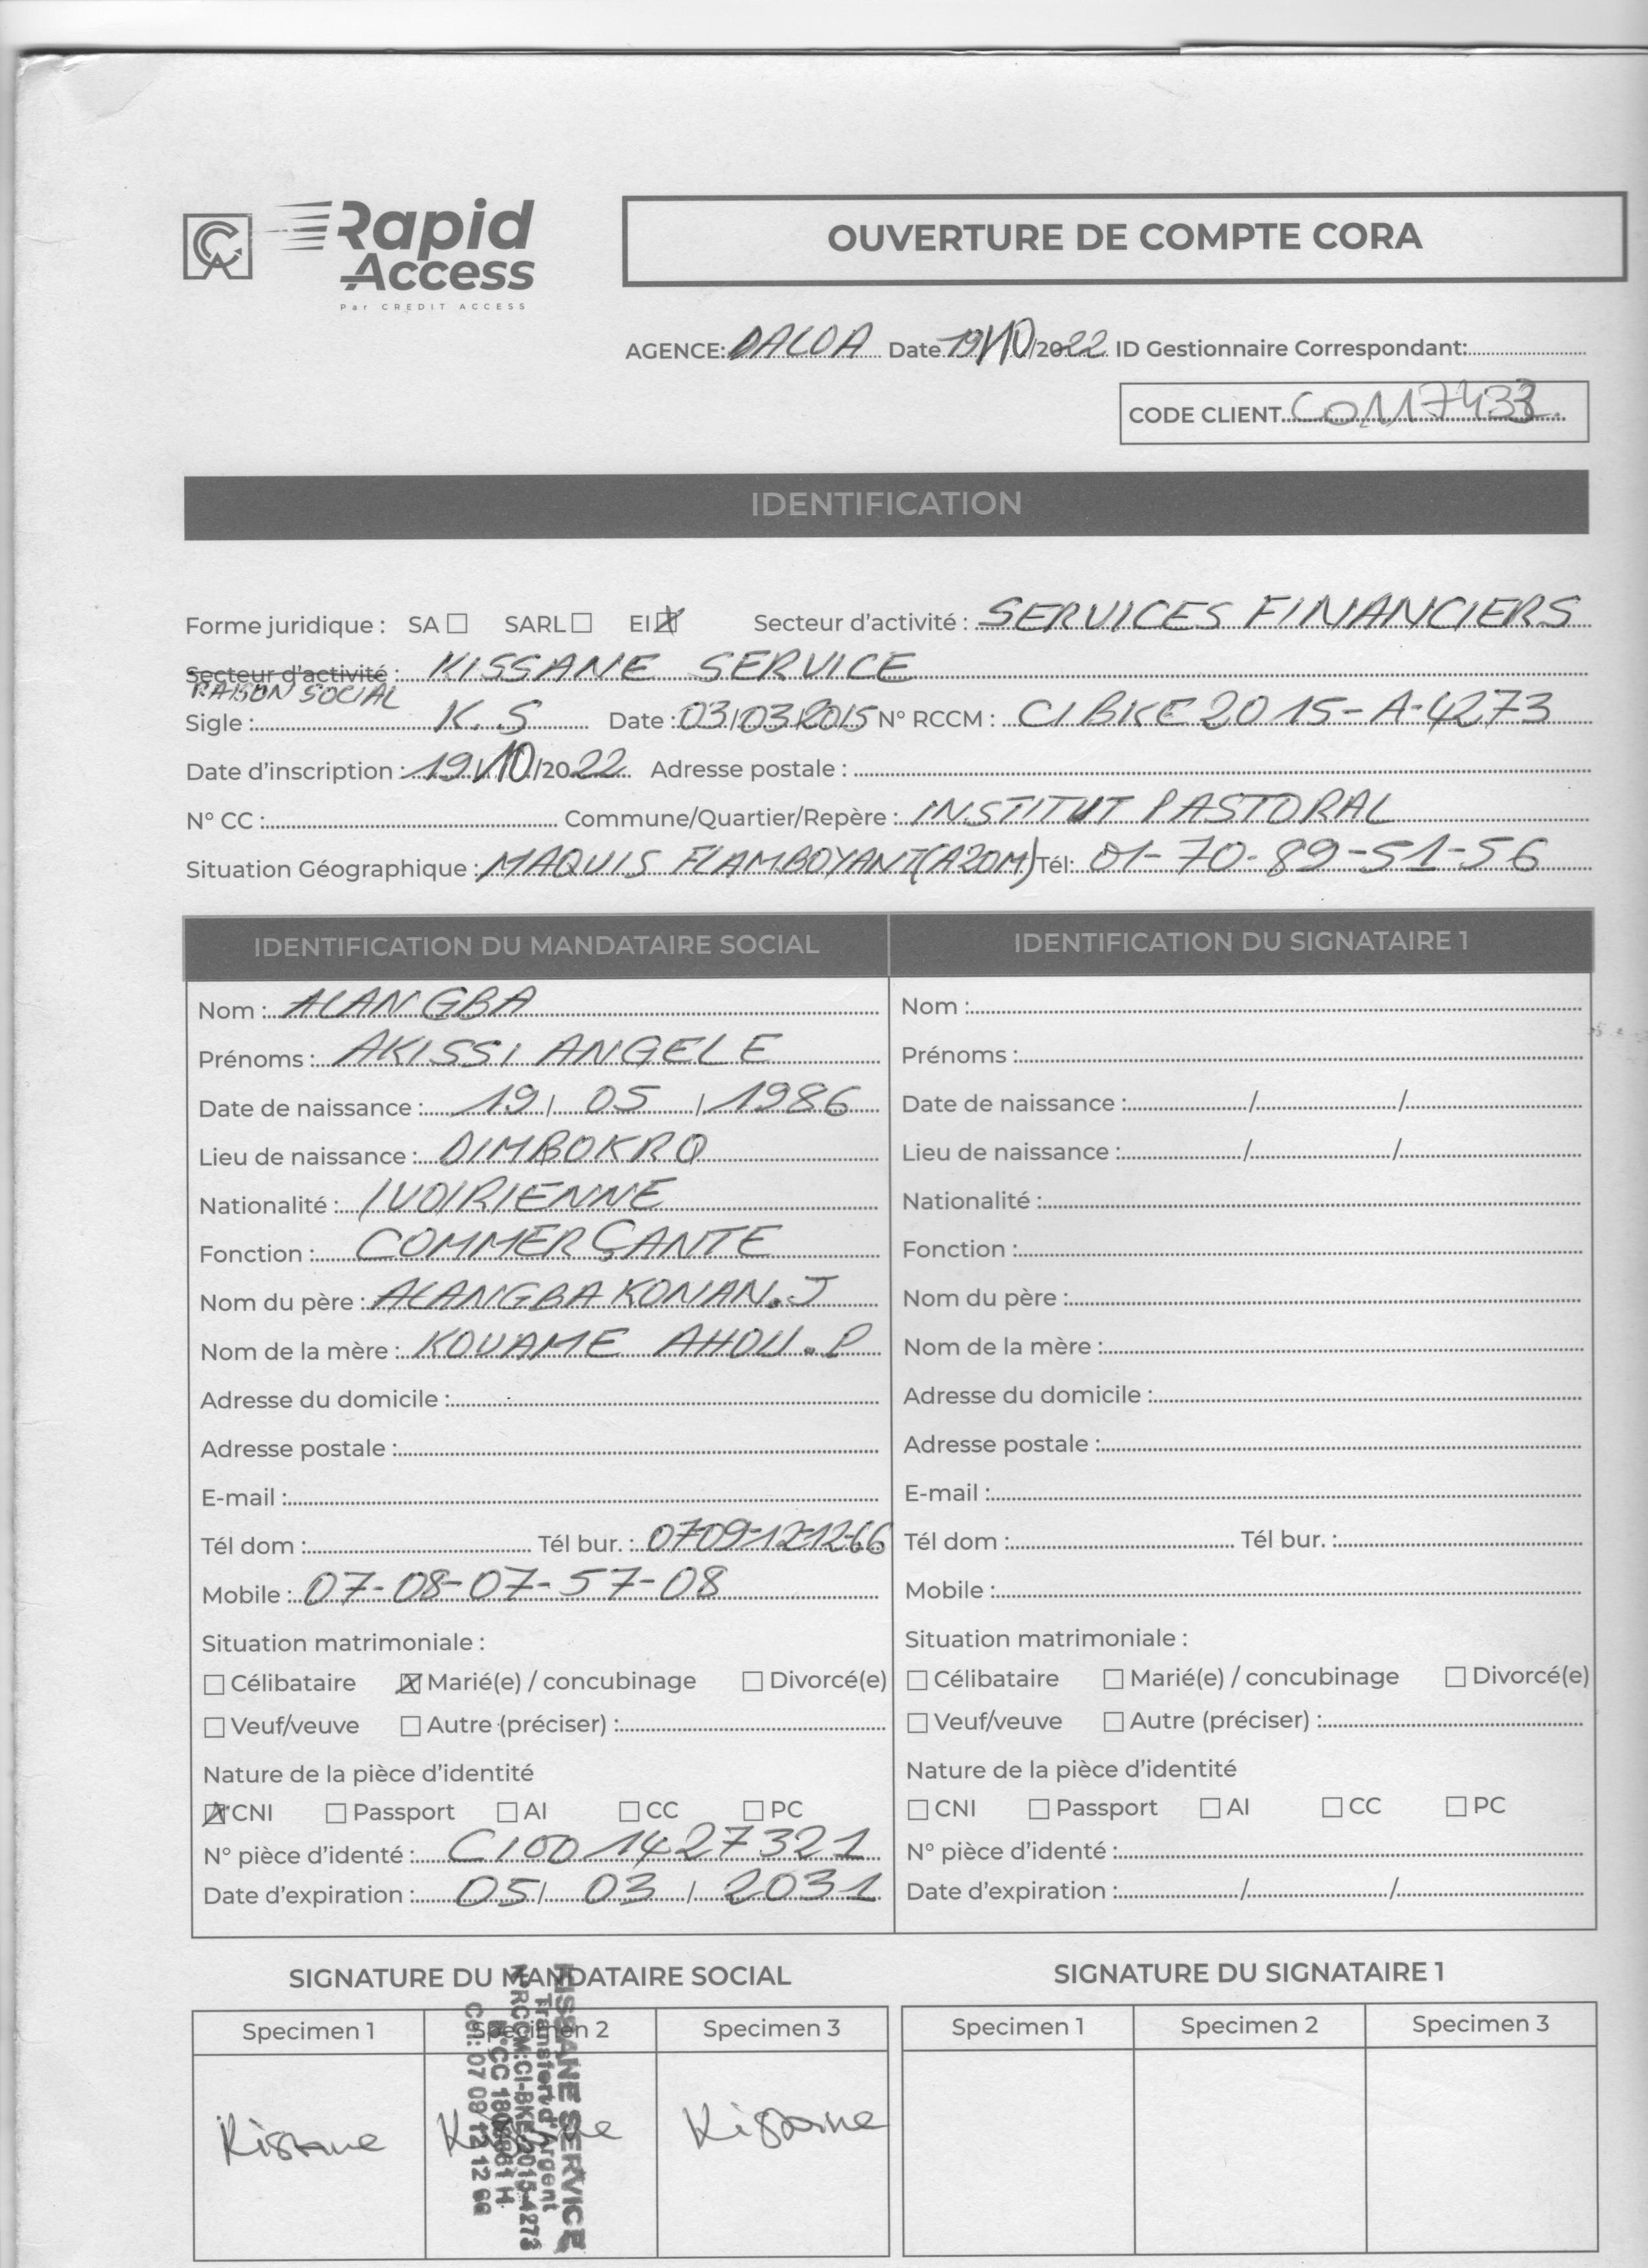 CA Rapid Access
Par CREDIT ACCESS
OUVERTURE DE COMPTE CORA
AGENCE: DALOA Date 19/10/2022 ID Gestionnaire Correspondant:
CODE CLIENT
IDENTIFICATION
Forme juridique : SA ☐ SARL ☐ EI ☒ Secteur d'activité : SERVICES FINANCIERS
Secteur d'activité : KISSANE SERVICE
RAISON SOCIAL
Sigle : K.S Date : 03/03/2015 N° RCCM : CIBKE2015-A-4273
Date d'inscription : 19/10/2022 Adresse postale :
N° CC : Commune/Quartier/Repère : INSTITUT PASTORAL
Situation Géographique : MAQUIS FLAMBOYANT Tél: 01-70-89-51-56
IDENTIFICATION DU MANDATAIRE SOCIAL
Nom : ALANGBA
Prénoms : AKISSI ANGELE
Date de naissance : 19/05/1986
Lieu de naissance : DIMBOKRO
Nationalité : IVOIRIENNE
Fonction : COMMERÇANTE
Nom du père : ALANGBA KONAN.J
Nom de la mère : KOUAME AHOU.P
Adresse du domicile :
Adresse postale :
E-mail :
Tél dom : Tél bur. : 0709-12-12-66
Mobile : 07-08-07-57-08
Situation matrimoniale :
☐ Célibataire ☒ Marié(e) / concubinage ☐ Divorcé(e)
☐ Veuf/veuve ☐ Autre (préciser) :
Nature de la pièce d'identité
☒ CNI ☐ Passport ☐ AI ☐ CC ☐ PC
N° pièce d'identé : CI001427321
Date d'expiration : 05/03/2031
IDENTIFICATION DU SIGNATAIRE 1
Nom :
Prénoms :
Date de naissance : / /
Lieu de naissance : / /
Nationalité :
Fonction :
Nom du père :
Nom de la mère :
Adresse du domicile :
Adresse postale :
E-mail :
Tél dom : Tél bur. :
Mobile :
Situation matrimoniale :
☐ Célibataire ☐ Marié(e) / concubinage ☐ Divorcé(e)
☐ Veuf/veuve ☐ Autre (préciser) :
Nature de la pièce d'identité
☐ CNI ☐ Passport ☐ AI ☐ CC ☐ PC
N° pièce d'identé :
Date d'expiration : / /
SIGNATURE DU MANDATAIRE SOCIAL
Specimen 1 Specimen 2 Specimen 3
Kissane Kissane
KISSANE SERVICE
Transfert d'Argent
N°RCCM:CI-BKE-2015-4273
N°CC
Cel: 07 09 12 12 66
SIGNATURE DU SIGNATAIRE 1
Specimen 1 Specimen 2 Specimen 3